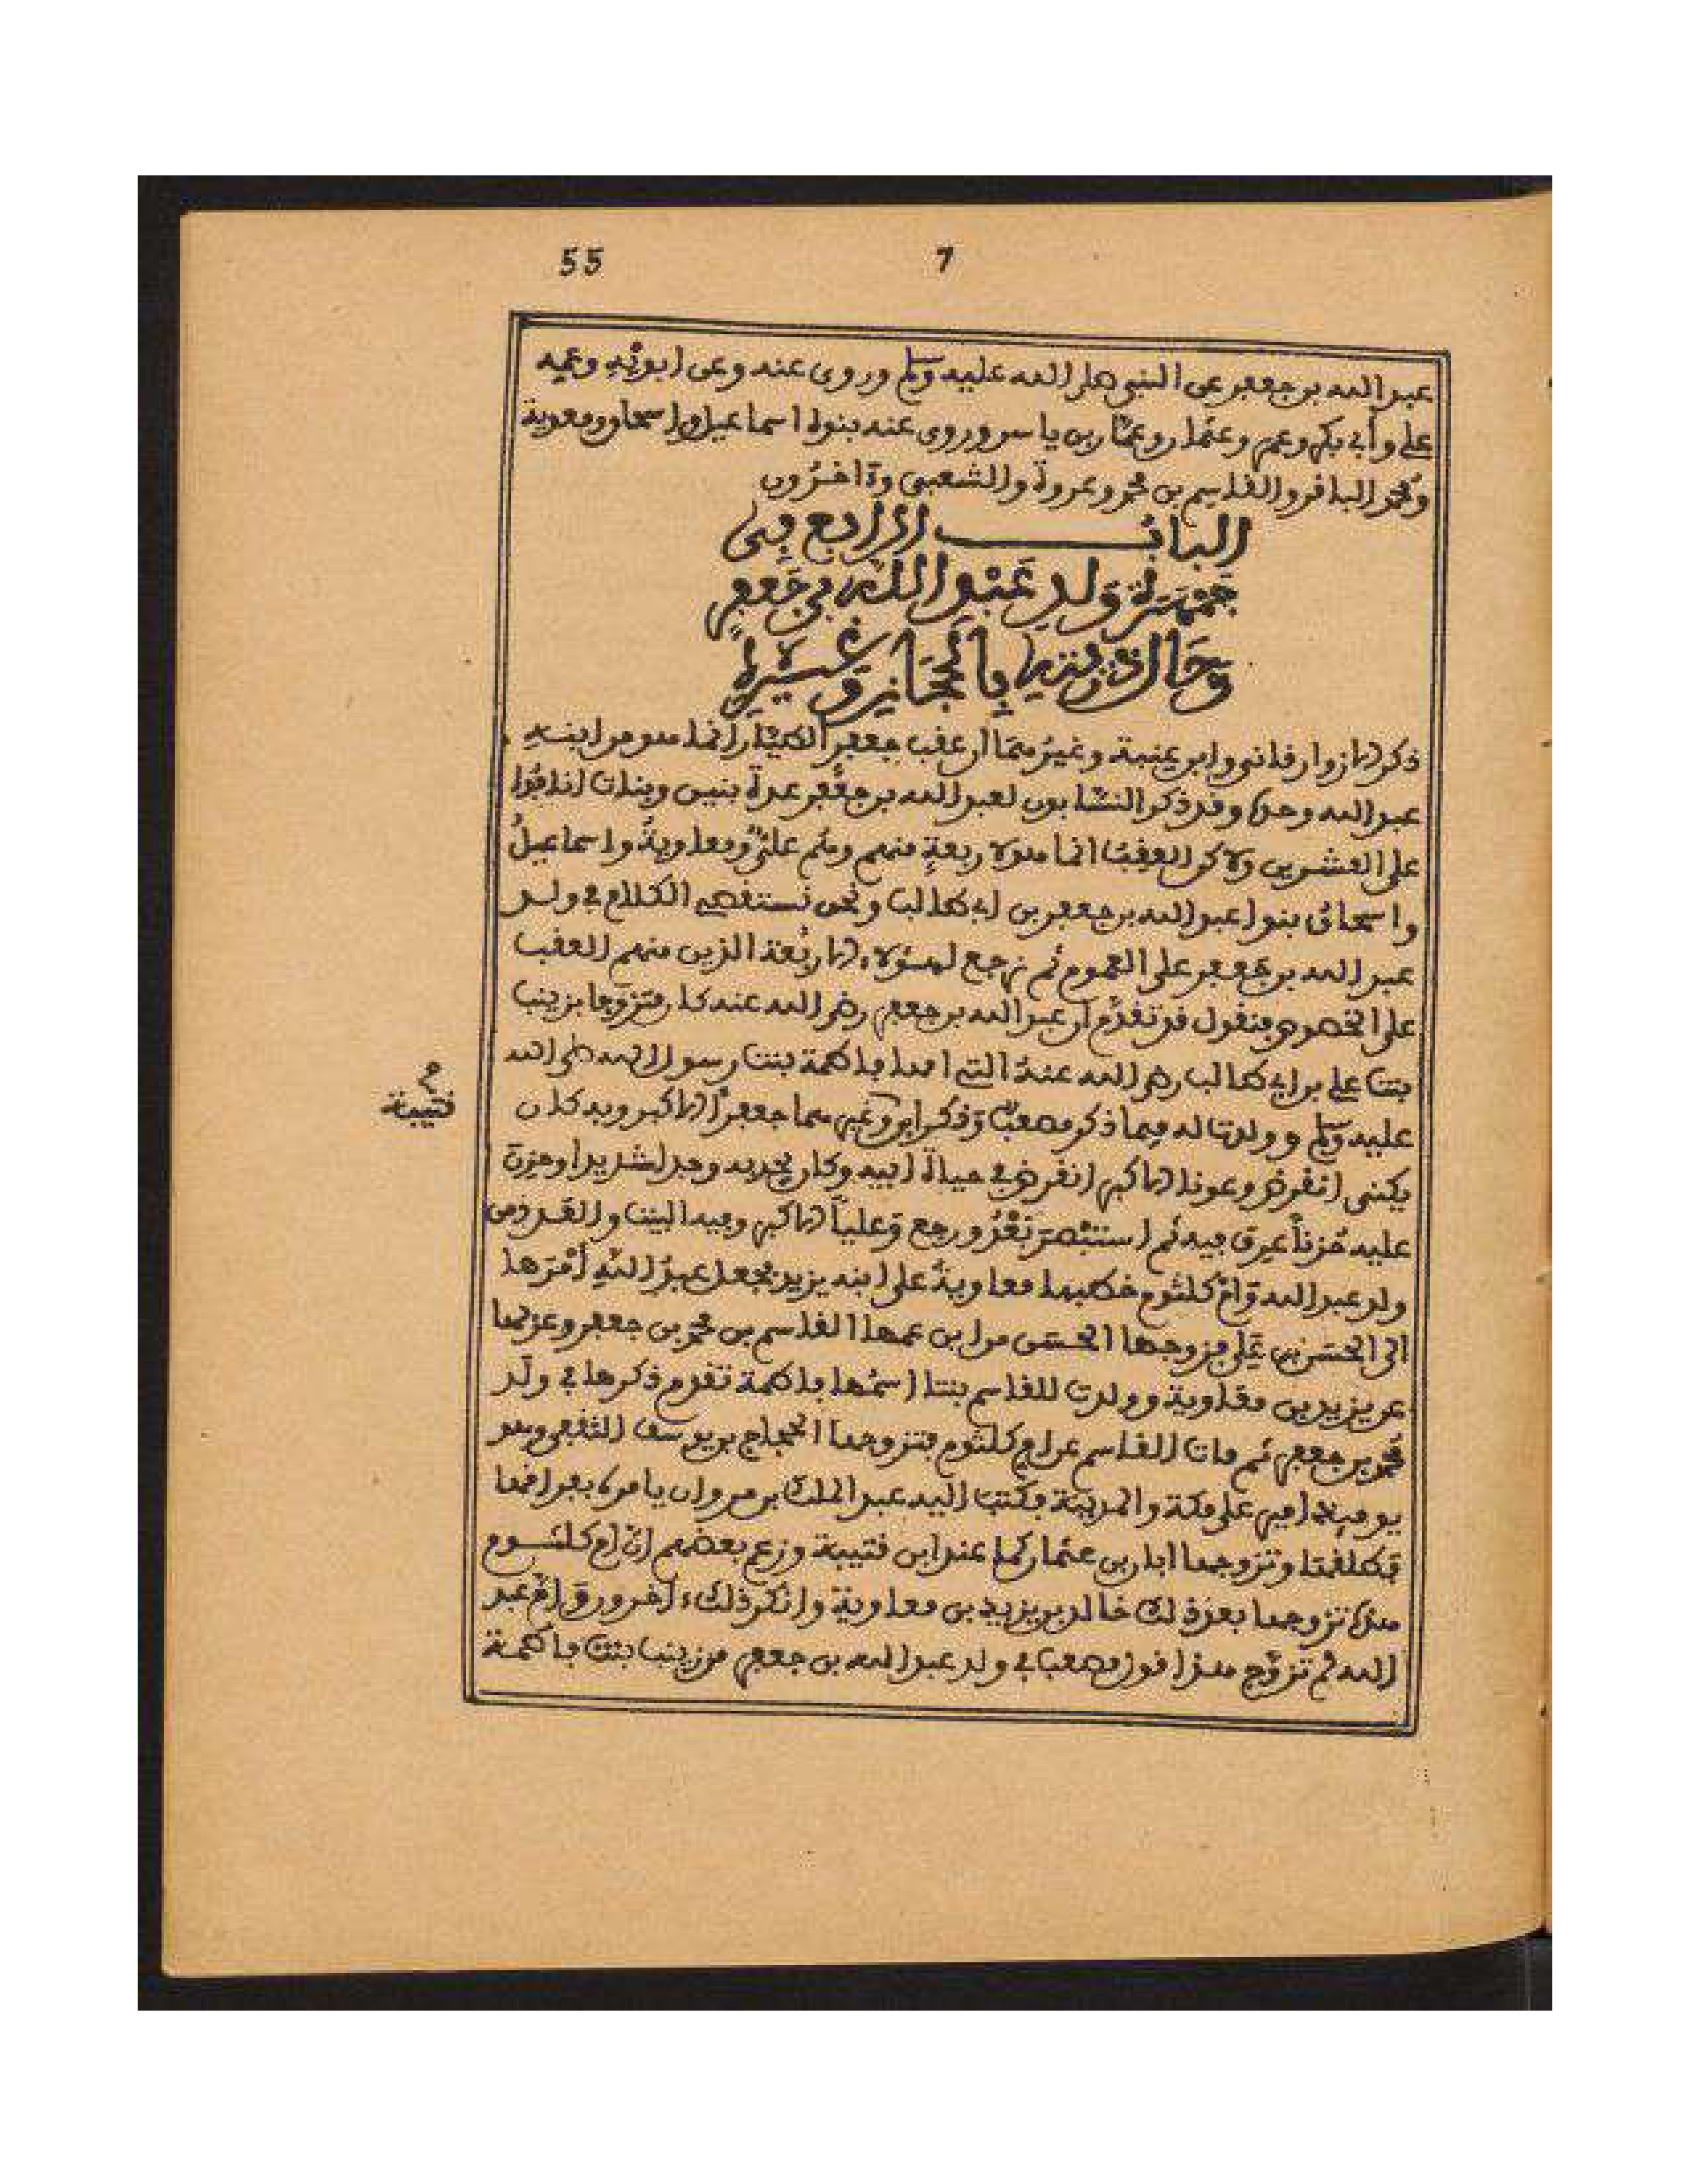 55 7
عبد الله بن جعفر عن النبي صلى الله عليه وسلم وروى عنه وعن أبويه وعمه
علي وأبي بكر وعمر وعثمان وعمّار بن ياسر وروى عنه بنوه اسماعيل وإسحاق ومعوية
ومحمد الباقر والقاسم بن محمد وعروة والشعبي وءاخرون
الباب الرابع في
جمهرة ولد عبد الله بن جعفر
وحال ذريته بالحجاز وغيره
ذكر الازوارقاني وابن عنبة وغيرهما أن عقب جعفر الطيّار إنما هو من ابنه
عبد الله وحده وقد ذكر النسّابون لعبد الله بن جعفر عدة بنين وبنات أنافوا
على العشرين ولاكن العقب انما هو لاربعة منهم وهم علي ومعاوية واسماعيل
واسحاق بنوا عبد الله بن جعفر بن ابي طالب ونحن نستقصي الكلام في ولد
عبد الله بن جعفر على العموم ثم نرجع لهؤلاء الاربعة الذين منهم العقب
على الخصوص فنقول قد تقدّم أن عبد الله بن جعفر رضي الله عنه كان متزوجا بزينب
بنت علي بن ابي طالب رضي الله عنه التي امها فاطمة بنت رسول الله صلى الله
عليه وسلم وولدت له فيما ذكر مصعب وذكر ابن وغيرهما جعفرا الاكبر وبه كان
قتيبة
يكنى انقرض وعونا الاكبر انقرض في حياة ابيه وكان يحبه ووجد شديدا وحزن
عليه حزناً عرف فيه ثم استبصر بعد ورجع وعلياً الاكبر وفيه البيت والعدد من
ولد عبد الله وأم كلثوم خطبها معاوية على ابنه يزيد فجعل عبد الله أمرها
الى الحسن بن علي فزوجها الحسن من ابن عمها القاسم بن محمد بن جعفر وعزلها
عن يزيد بن معاوية وولدت للقاسم بنتا اسمها فاطمة تقدم ذكرها في ولد
محمد بن جعفر ثم مات القاسم عن أم كلثوم فتزوجها الحجاج بن يوسف الثقفي وهو
يومئذ أمير على مكة والمدينة فكتب اليه عبد الملك بن مروان يامره بفراقها
فطلقها وتزوجها ابان بن عثمان كما عند ابن قتيبة وزعم بعضهم ان ام كلثوم
هذه تزوجها بعد ذلك خالد بن يزيد بن معاوية وانكر ذلك ءاخرون وأم عبد
الله لم تزوّج هذا قول مصعب في ولد عبد الله بن جعفر من زينب بنت فاطمة